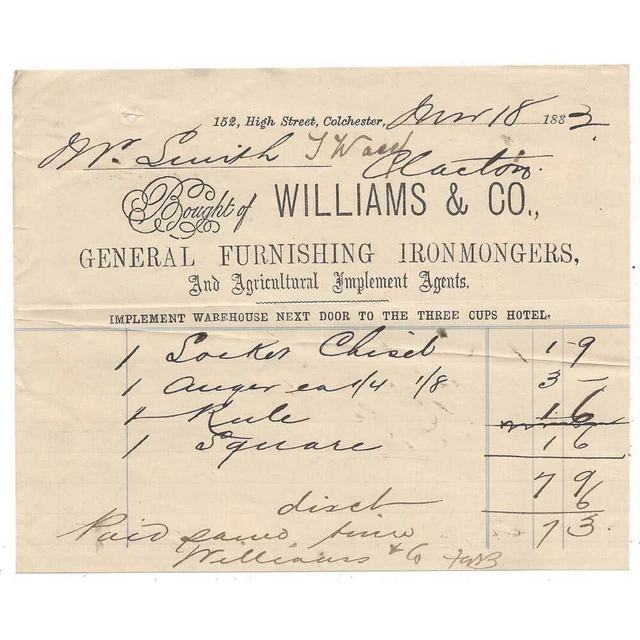 152, High Street, Colchester, Nov 18 1882
Mr. Smith T Ward Clacton.
Bought of WILLIAMS & CO.,
GENERAL FURNISHING IRONMONGERS,
And Agricultural Implement Agents.
IMPLEMENT WAREHOUSE NEXT DOOR TO THE THREE CUPS HOTEL.
1 Socket Chisel 1-9
1 Auger ea 1/4 1/8 3 -
1 Rule 1 6
1 Square 1 6
7 9
disct 6
Paid same time 7 3.
Williams & Co